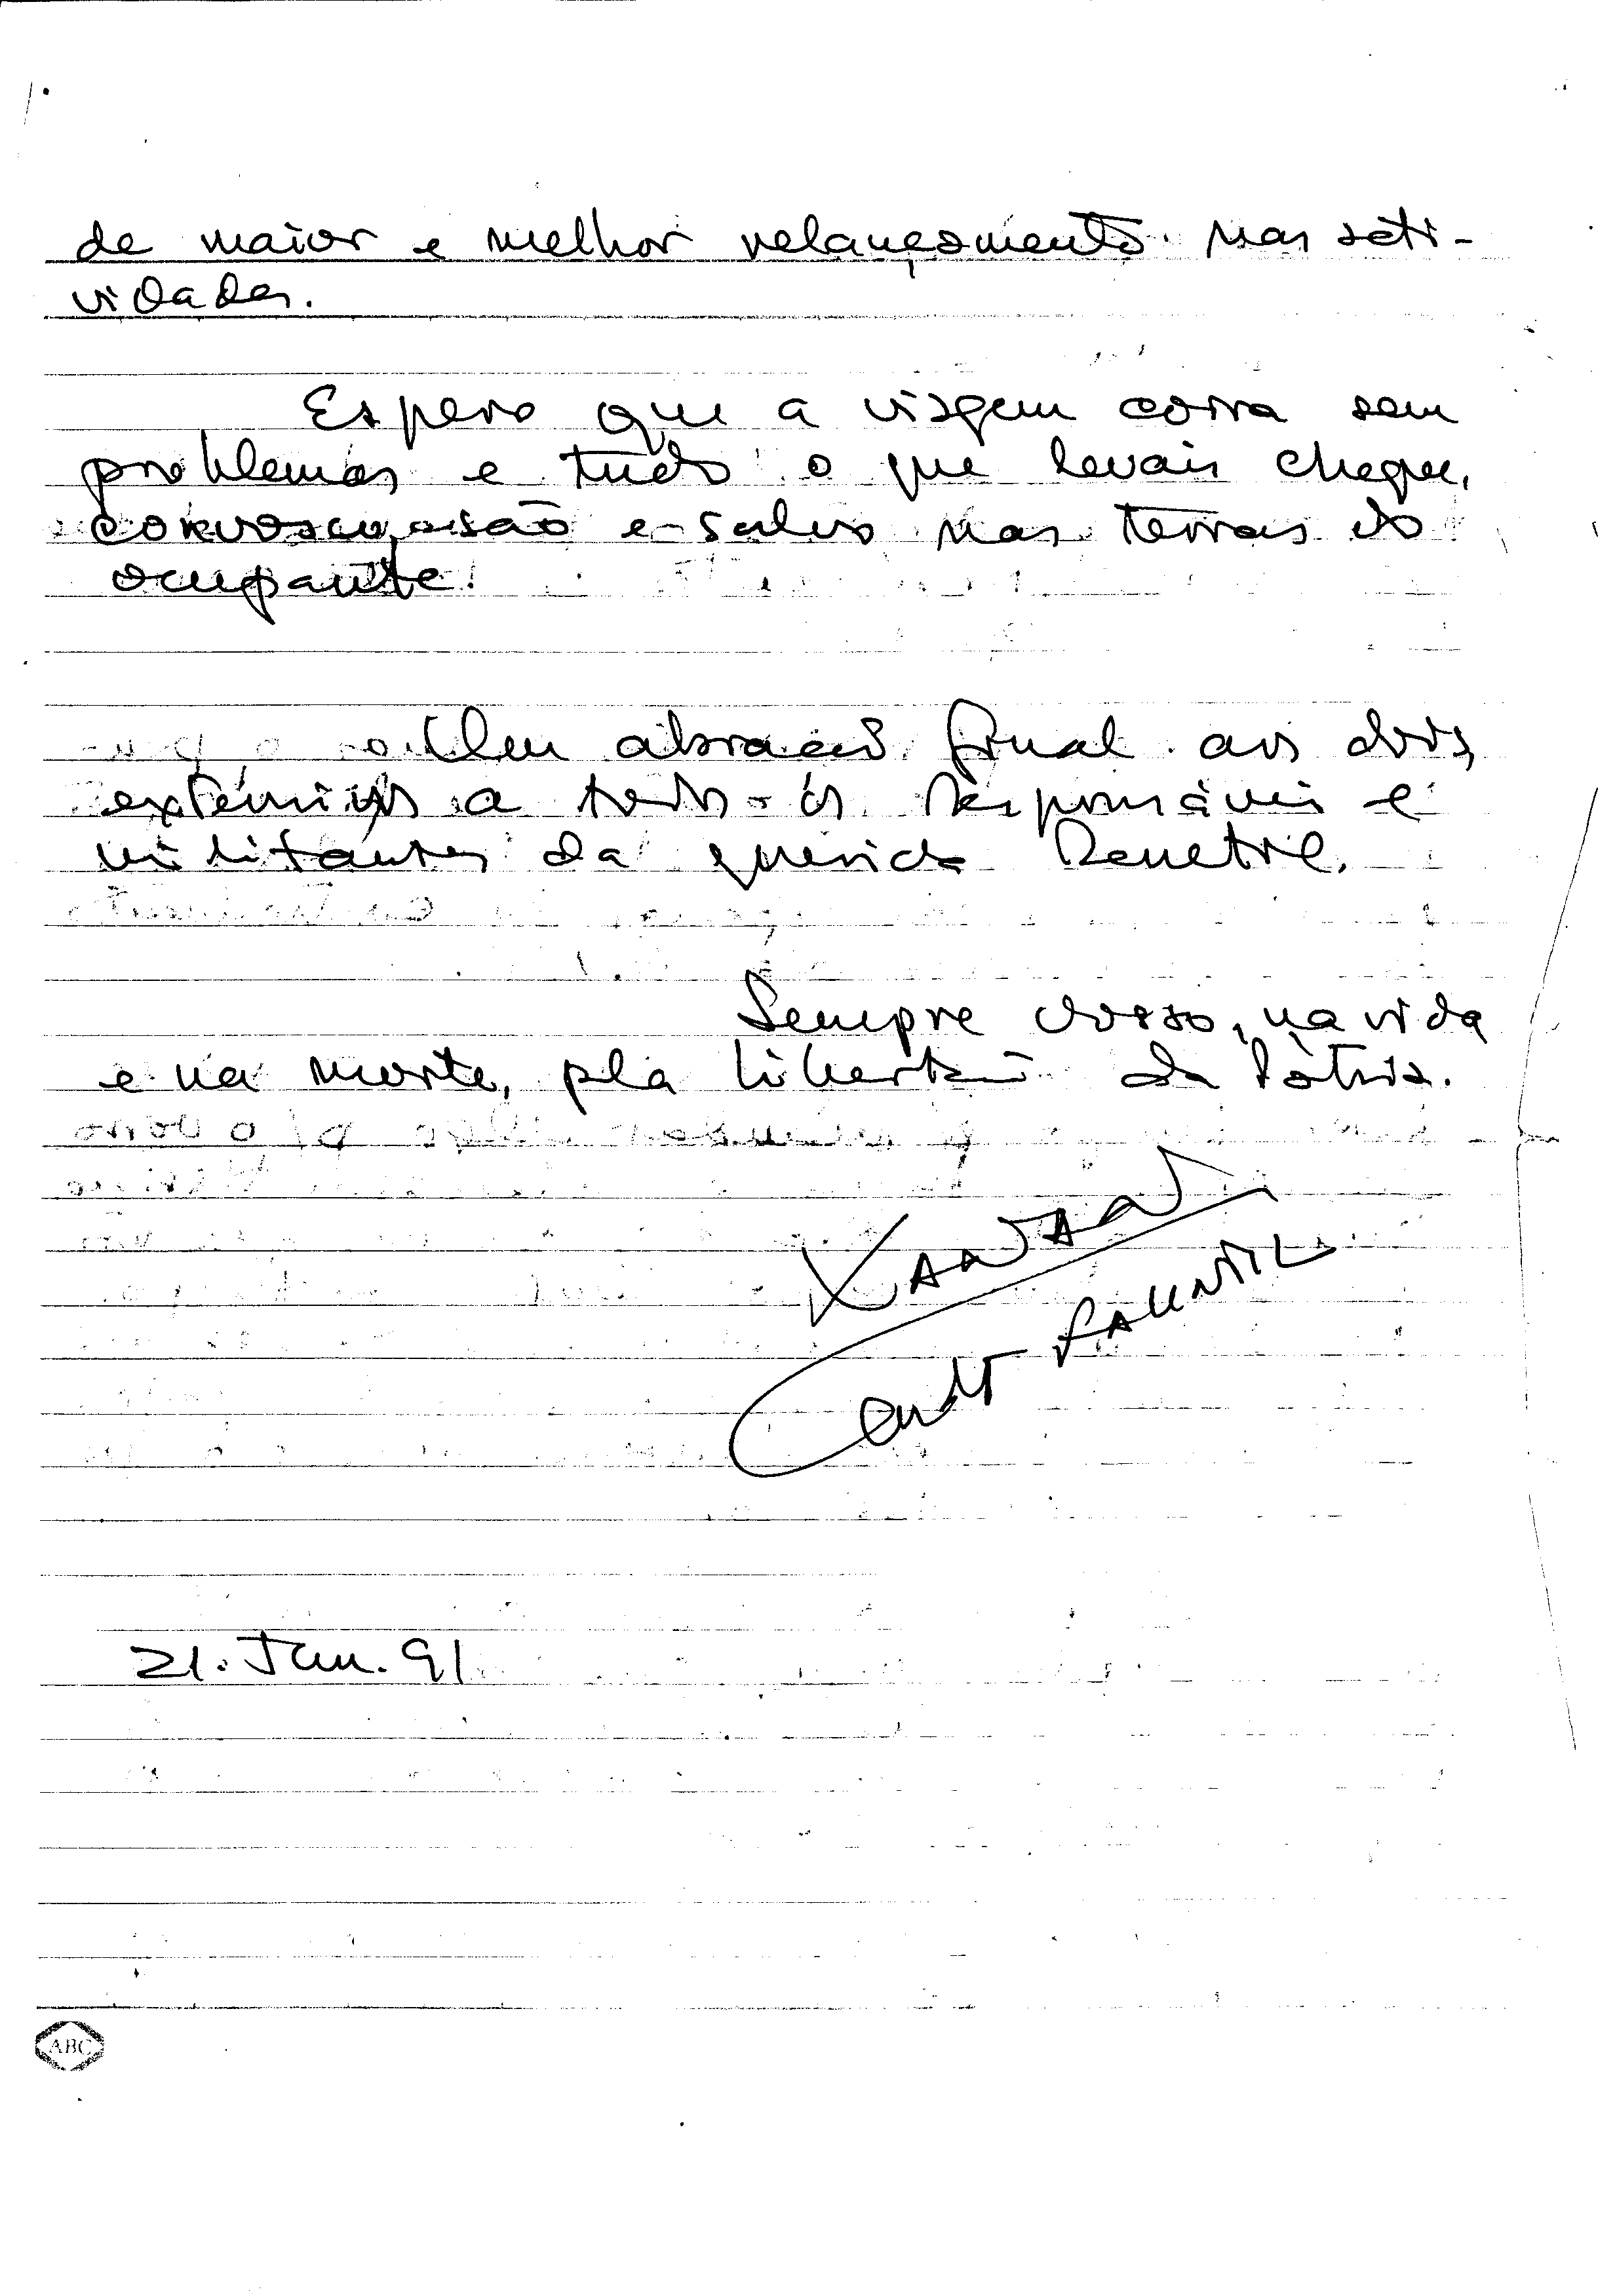 de maior e melhor relançamento nas acti-
vidades.
Espero que a viagem corra sem
problemas e tudo o que levais chegue,
convosco, são e salvo nas terras do
ocupante.
Um abraço final aos dois,
extensivos a todos os Responsáveis e
militantes da querida Renetil.
Sempre vosso, na vida
e na morte, pla libertação da Pátria.
Xanana
21. Jan. 91
ABC